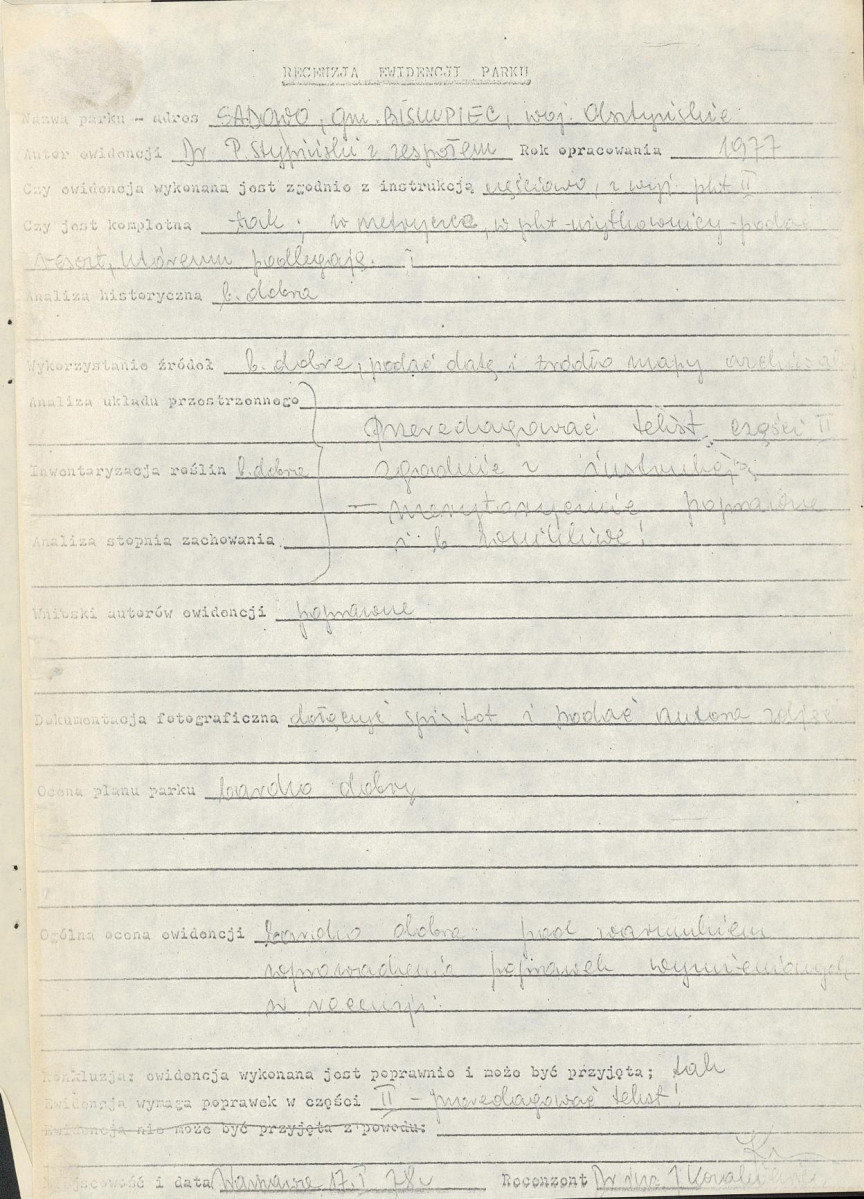 RECENZJA EWIDENCJI PARKU
Nazwa parku - adres SADOWO, gm. BISKUPIEC, woj. Olsztyńskie
Autor ewidencji Dr P. Stypiński z zespołem Rok opracowania 1977
Czy ewidencja wykonana jest zgodnie z instrukcją częściowo, z wyj. pkt II
Czy jest kompletna tak; w metryczce, w pkt użytkownicy - podać
resort, któremu podlegają.
Analiza historyczna b. dobra
Wykorzystanie źródeł b. dobre, podać datę i źródło mapy
Analiza układu przestrzennego
przeredagować tekst części II
Inwentaryzacja roślin b. dobra zgodnie z instrukcją;
- merytorycznie poprawne
Analiza stopnia zachowania i b. wnikliwe!
Wnioski autorów ewidencji poprawne
Dokumentacja fotograficzna dołączyć spis fot i podać autora zdjęć
Ocena planu parku bardzo dobry
Ogólna ocena ewidencji bardzo dobra pod warunkiem
wprowadzenia poprawek wymienionych
w recenzji.
Konkluzja: ewidencja wykonana jest poprawnie i może być przyjęta; tak
Ewidencja wymaga poprawek w części II - przeredagować tekst!
Ewidencja nie może być przyjęta z powodu:
Miejscowość i data Warszawa 17.I 78 Recenzent Dr inż. J